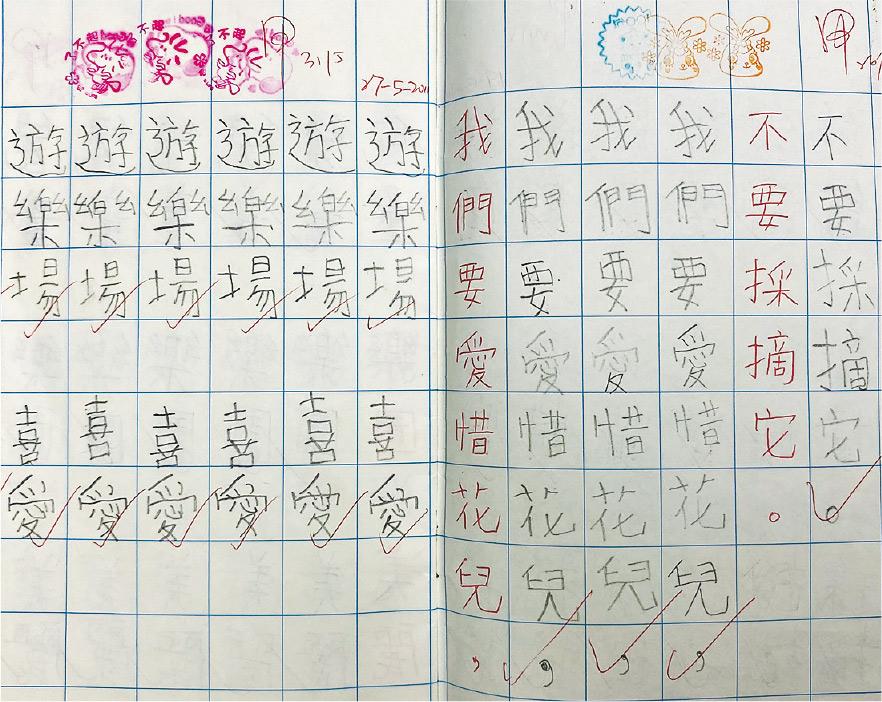 27-5-2011
遊樂場
喜愛
遊樂場
喜愛
遊樂場
喜愛
遊樂場
喜愛
遊樂場
喜愛
遊樂場
喜愛
我們要愛惜花兒，
我們要愛惜花兒，
我們要愛惜花兒，
我們要愛惜花兒，
不要採摘它。
不要採摘它。